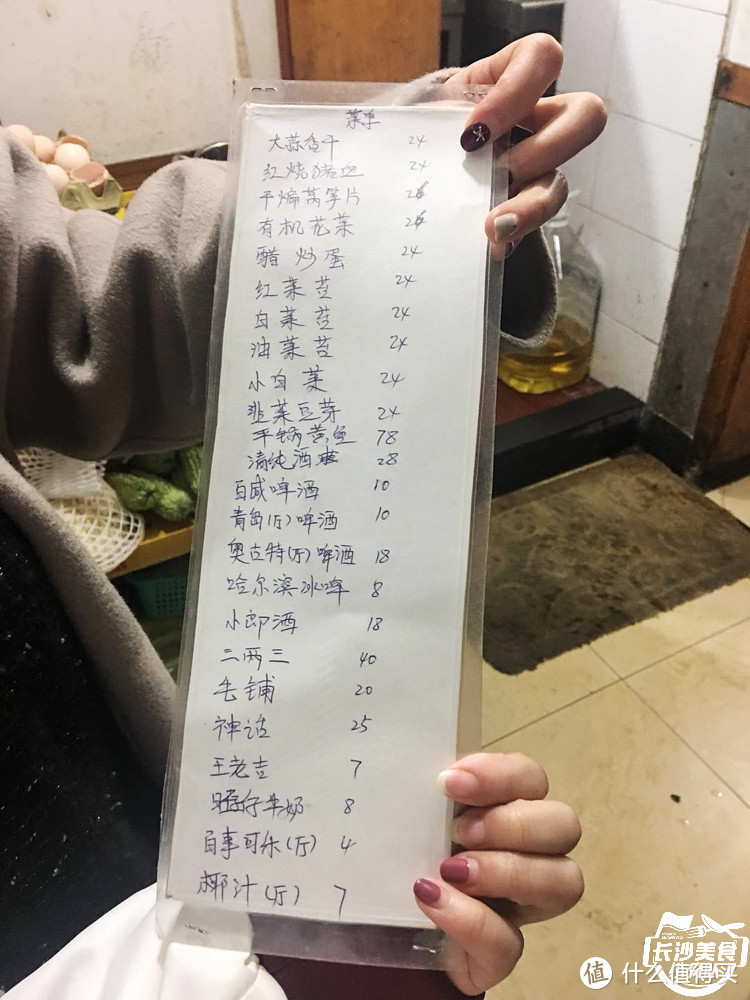 菜单
大蒜香干 24
红烧猪血 24
干煸莴笋片 26
有机花菜 26
醋炒蛋 24
红菜苔 24
白菜苔 24
油菜苔 24
小白菜 24
韭菜豆芽 24
平锅黄鱼 78
清纯酒 28
百威啤酒 10
青岛(厅)啤酒 10
奥古特(厅)啤酒 18
哈尔滨冰啤 8
小郎酒 18
二两三 40
毛铺 20
神话 25
王老吉 7
旺仔牛奶 8
百事可乐(厅) 4
椰汁(厅) 7
长沙美食
值 什么值得买